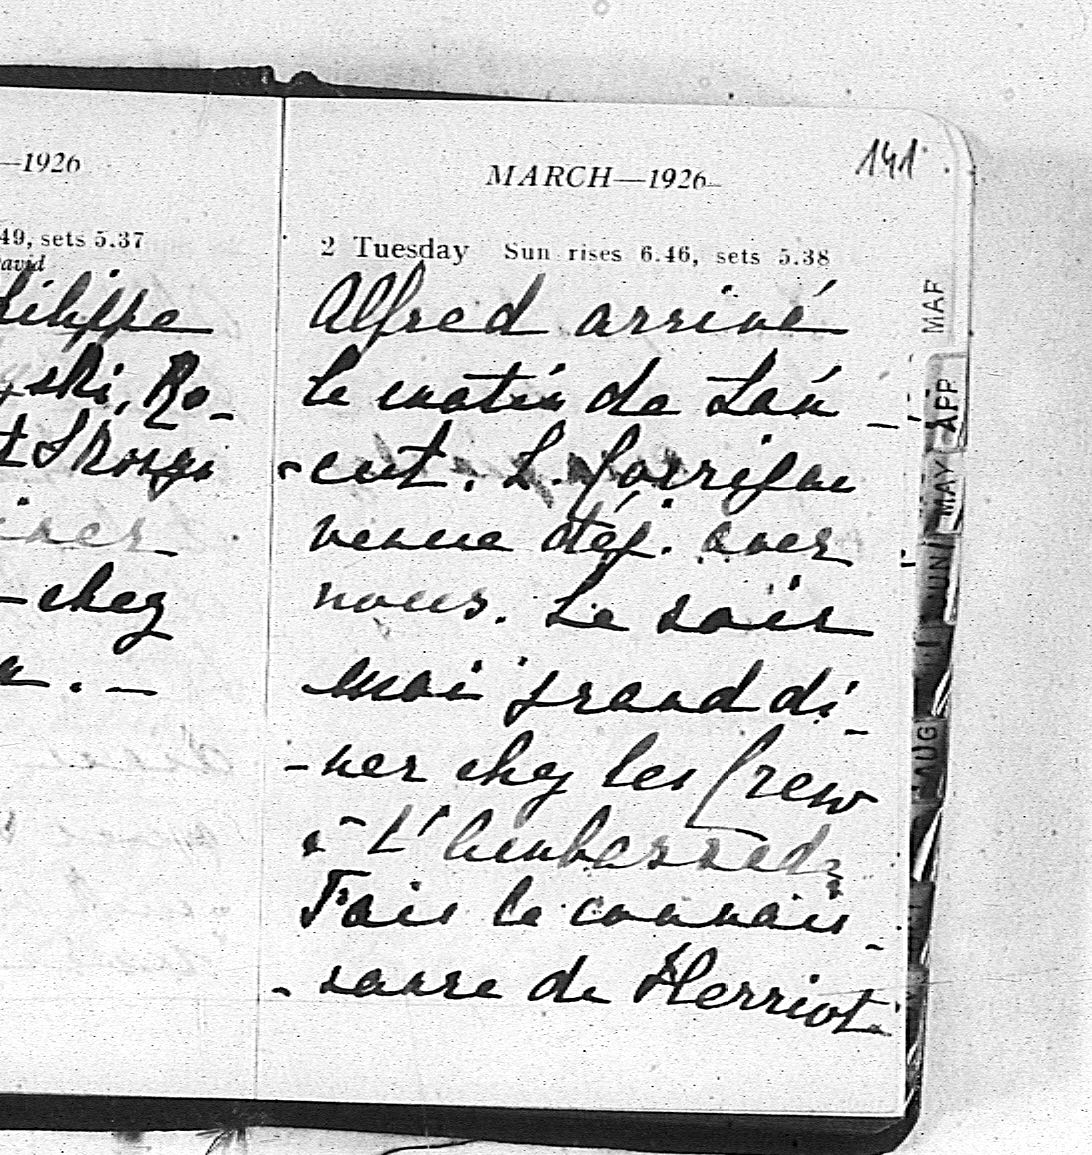 —1926
49, sets 5.37
avid
hilippe
yski, Ro-
chez
MARCH—1926
141
2 Tuesday Sun rises 6.46, sets 5.38
Alfred arrivé
le matin de Lan
-cut. L. Garrigue
venue déj. avec
nous. Le soir
moi grand di-
-ner chez les Frew
à l'Embassade
Fais la connais-
-sance de Herriot.
MAR
APP
MAY
UNI
AUG